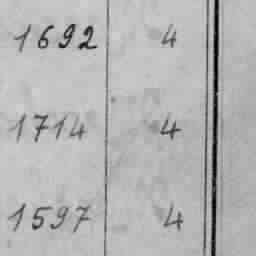 1692 4
1714 4
1597 4